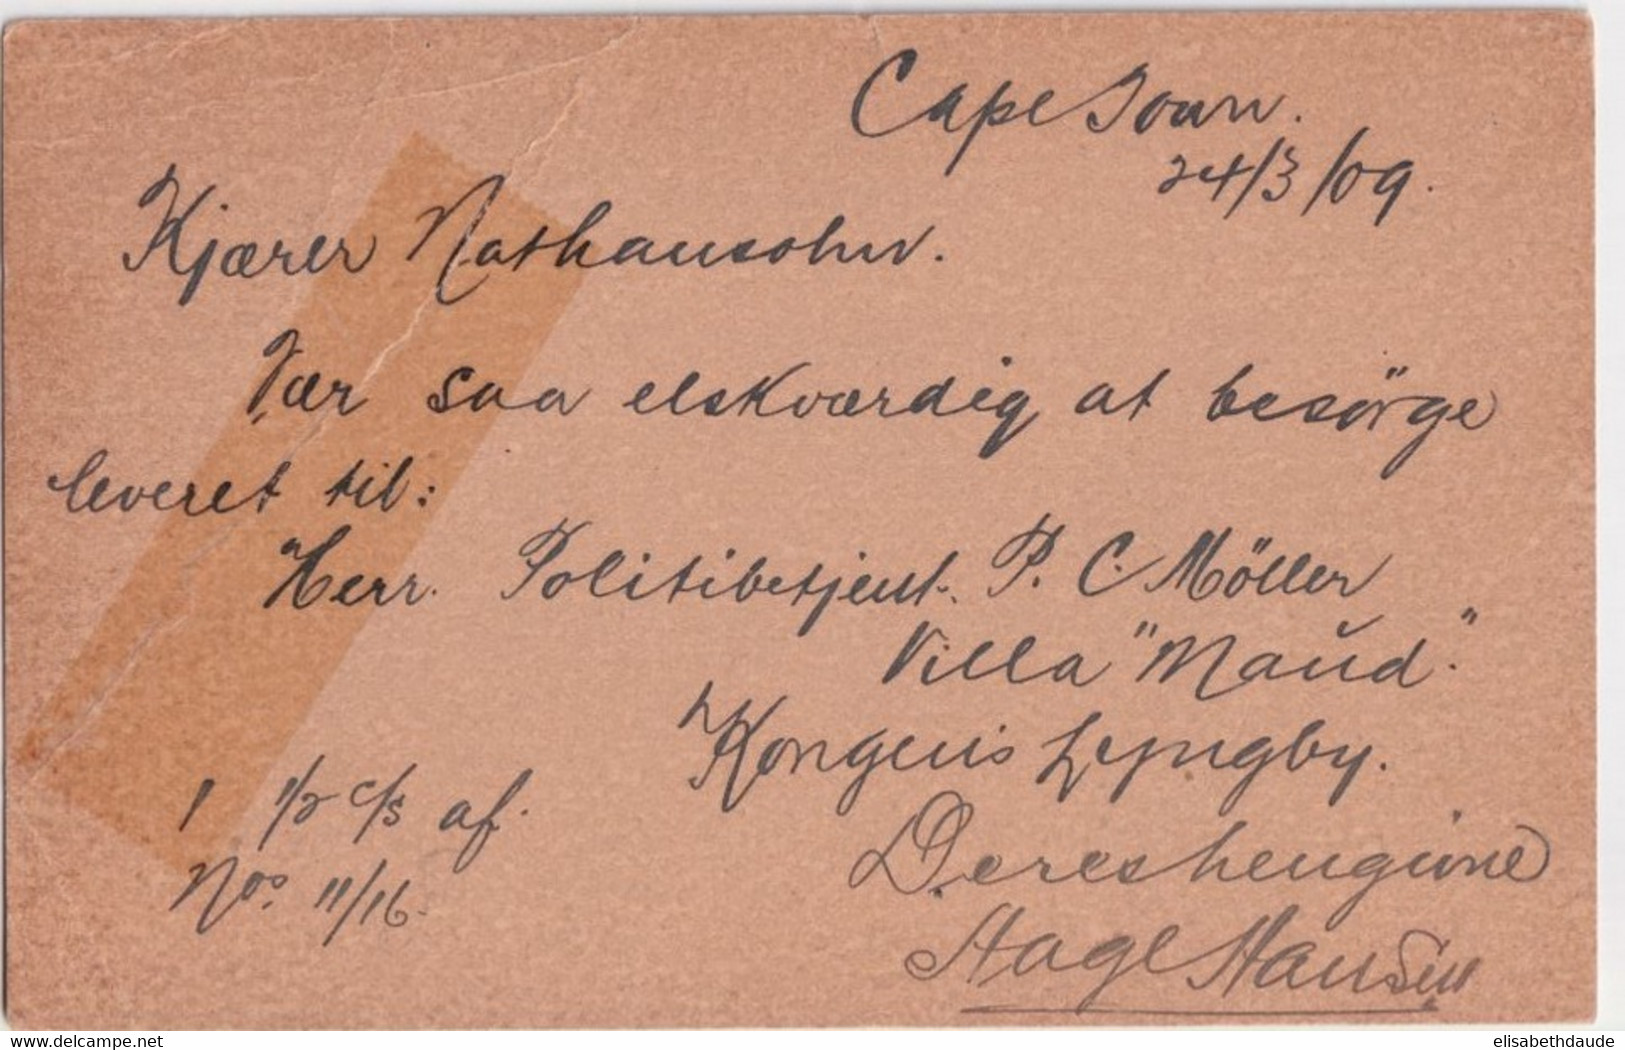 Cape Town.
24/3/09.
Kjærer Nathansohn.
Vær saa elskværdig at besörge
leveret til:
Herr. Politibetjent. P. C. Möller
Villa "Maud."
Kongens Lyngby.
1 1/2 c/s af.
Nos. 11/16.
Deres hengivne
Aage Hansen
delcampe.net
elisabethdaude